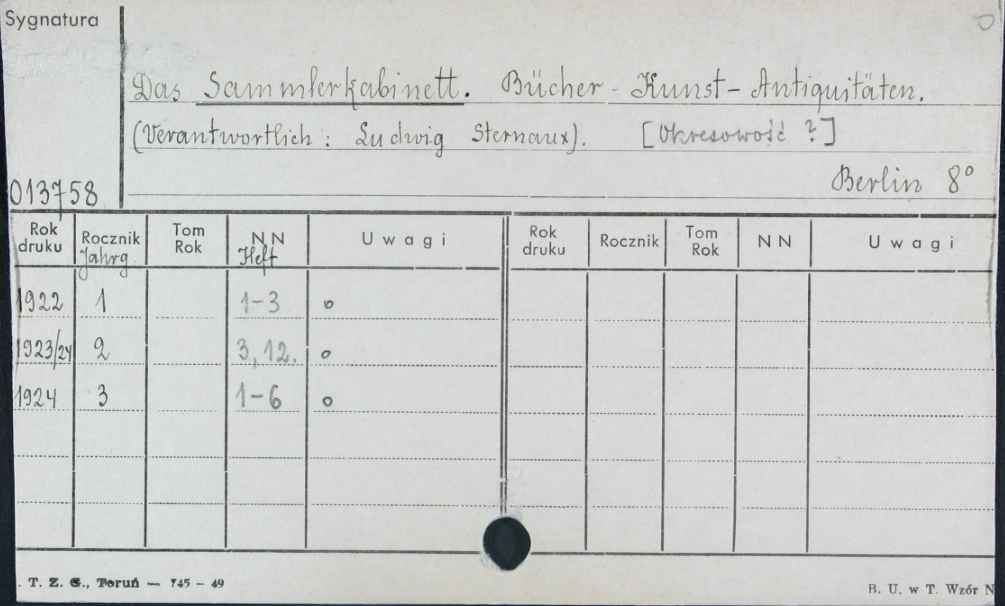 Sygnatura
Das Sammlerkabinett. Bücher - Kunst - Antiquitäten.
(Verantwortlich: Ludwig Sternaux). [Okresowość ?]
Berlin 8°
013758
Rok druku Rocznik Jahrg. Tom Rok NN Heft Uwagi Rok druku Rocznik Tom Rok NN Uwagi
1922 1 1-3 o
1923/24 2 3, 12. o
1924 3 1-6 o
. T. Z. G., Toruń — 745 - 49
B. U. w T. Wzór N